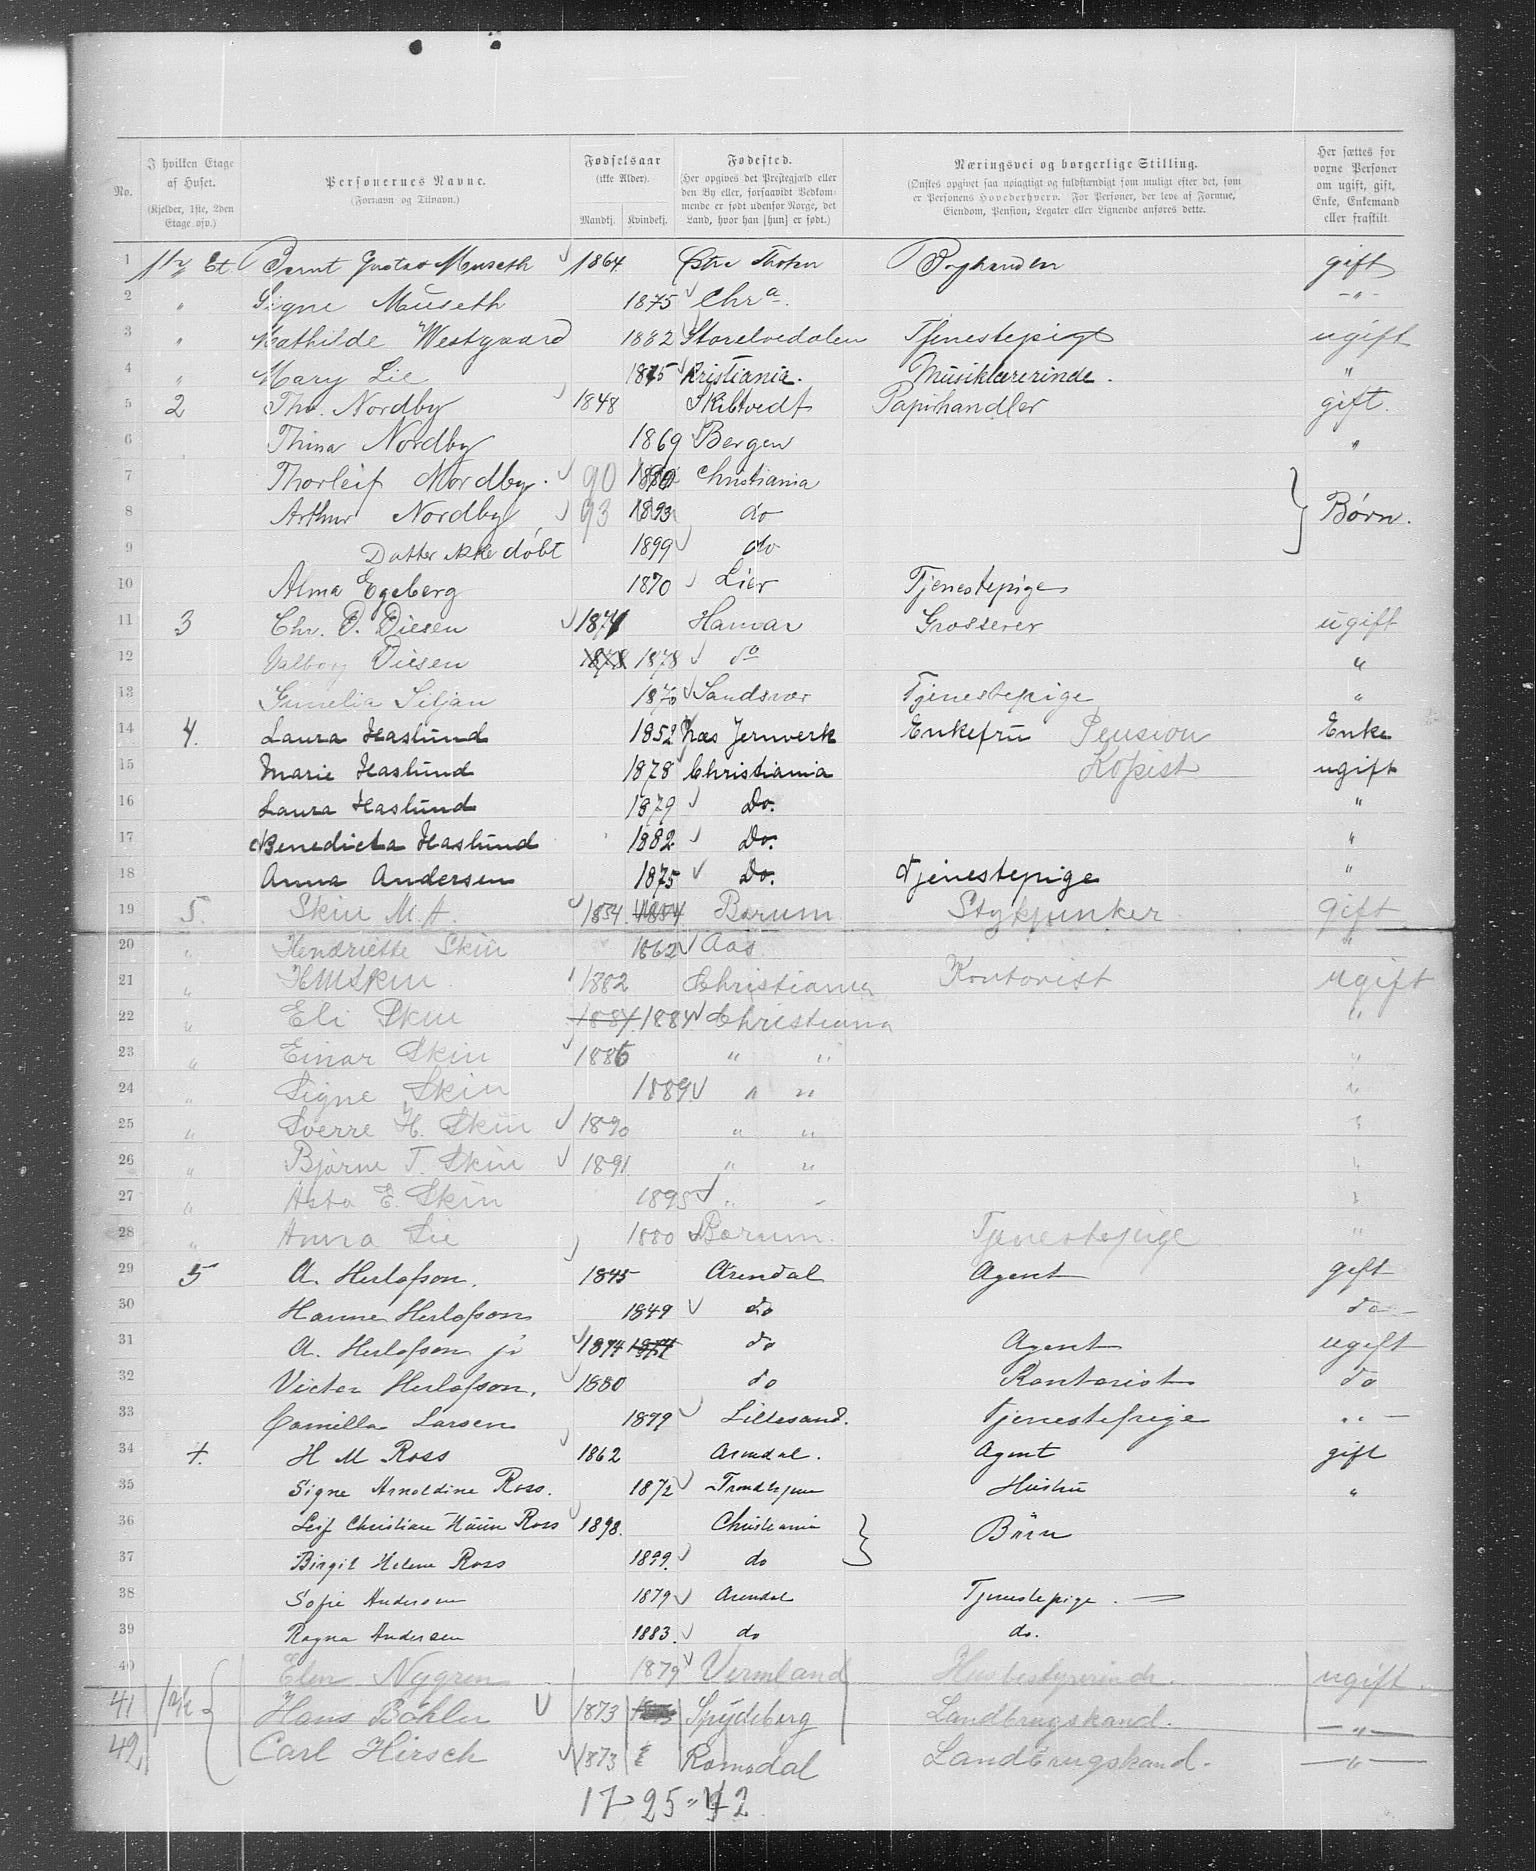 No.
I hvilken Etage af Huset.
(Kjelder, 1ste, 2den Etage osv.)
Personernes Navne.
(Fornavn og Tilnavn.)
Fødselsaar
(ikke Alder).
Mandkj. Kvindekj.
Fødested.
(Her opgives det Prestegjæld eller den By eller, forsaavidt Vedkommende er født udenfor Norge, det Land, hvor han [hun] er født.)
Næringsvei og borgerlige Stilling.
(Ønskes opgivet saa nøiagtigt og fuldstændigt som muligt efter det, som er Personens Hovederhverv. For Personer, der leve af Formue, Eiendom, Pension, Legater eller Lignende anføres dette.
Her sættes for voxne Personer om ugift, gift, Enke, Enkemand eller fraskilt
1 1ste Et Bernt Gustav Museth 1864 Østre Thoten gift
2 " Signe Museth 1875 Chra. -"-
3 " Mathilde Westgaard 1882 Storelvedalen Tjenestepige ugift
4 " Mary Lie 1875 Kristiania. Musiklærerinde. "
5 2 Thv. Nordby 1848 Skibtvedt Papirhandler gift.
6 Thina Nordby 1869 Bergen "
7 Thorleif Nordby. 90 1890 Christiania
8 Arthur Nordby 93 1893 do } Børn.
9 Datter ikke døbt 1899 do
10 Alma Egeberg 1870 Lier Tjenestepige
11 3 Chr. D. Diesen 1871 Hamar Grosserer ugift
12 Valborg Diesen 1878 1878 do "
13 Siljan 1870 Sandsvær Tjenestepige "
14 4. Laura Haslund 1852 Næs Jernverk Enkefru Pension Enke
15 Marie Haslund 1878 Christiania Kopist ugift
16 Laura Haslund 1879 Do. "
17 Benedicta Haslund 1882 Do. "
18 Anna Andersen 1875 Do. Tjenestepige "
19 5. Skiu M. A. 1854. 1854 Bærum Stykjunker gift
20 " Hendriette Skiu 1862 Aas "
21 " HMSkiu 1882 Christiania Kontorist ugift
22 " Eli Skiu 1884 1884 Christiania "
23 " Einar Skiu 1886 " " "
24 " Signe Skiu 1889 " " "
25 " Sverre H. Skiu 1890 " " "
26 " Bjarne T. Skiu 1891 " " "
27 " Asta E. Skiu 1895 " "
28 " Anna Lie 1880 Bærum. Tjenestepige "
29 5 A. Herlofson. 1845 Arendal Agent gift
30 Hanne Herlofson 1849 do do -
31 A. Herlofson jr 1874 1874 do Agent ugift
32 Victor Herlofson. 1880 do Kontorist do
33 Camilla Larsen 1879 Lillesand. Tjenestepige " -
34 4. H M Ross 1862 Arendal. Agent gift
35 Signe Arnoldine Ross. 1872 Trondhjem Hustru "
36 Leif Christian Huun Ross 1898. Christiania } Børn
37 Birgit Helene Ross 1899. do
38 Sofie Andersen 1879 Arendal Tjenestepige. —
39 Ragna Andersen 1883. do do.
40 Elen Nygren 1879 Vermland Husbestyrerinde. ugift.
41 Hans Bøhler 1873 Spydeberg Landbrugskand. —"—
42 Carl Hirsch 1873 Romsdal Landbrugskand. —"—
17 - 25 - 42